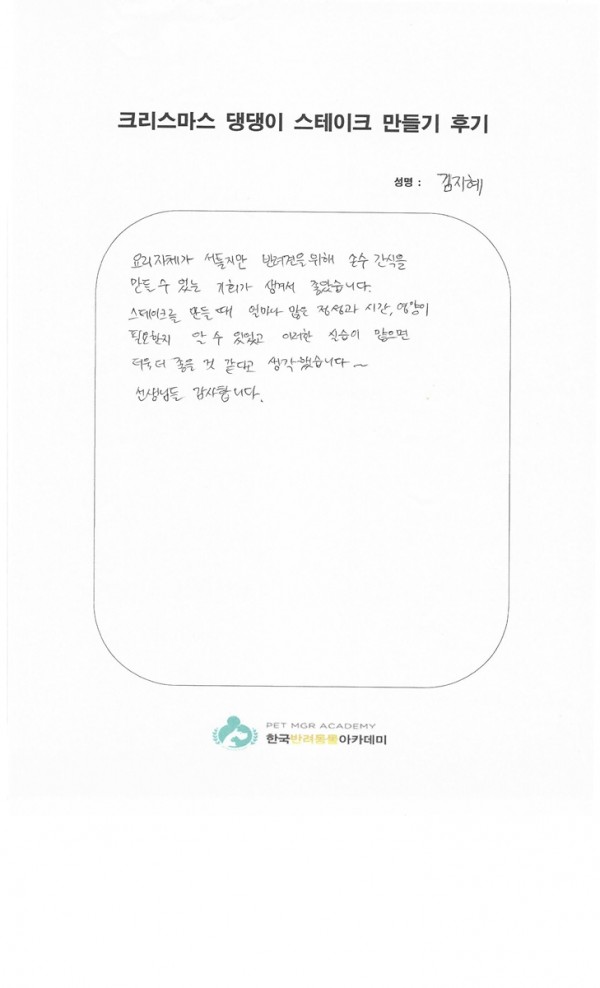 크리스마스 댕댕이 스테이크 만들기 후기
성명 : 김지혜
요리 자체가 서툴지만 반려견을 위해 손수 간식을
만들 수 있는 기회가 생겨서 좋았습니다.
스테이크를 만들 때 얼마나 많은 정성과 시간, 영양이
필요한지 알 수 있었고 이러한 실습이 많으면
더욱 더 좋을 것 같다고 생각했습니다~
선생님들 감사합니다.
PET MGR ACADEMY
한국반려동물아카데미